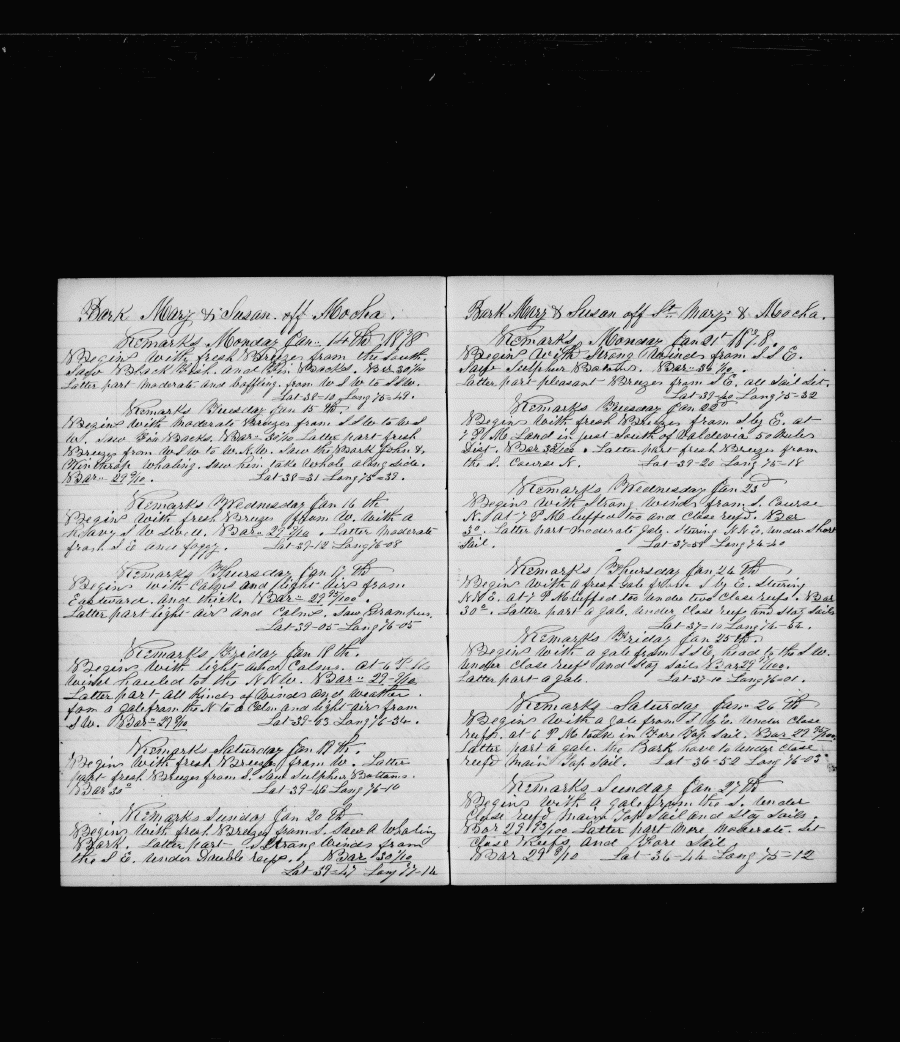 Bark Mary & Susan. off Mocha.
Remarks Monday Jan- 14th 1878
Begins with fresh Breezes from the South.
Saw Black Fish. and Fin Backs. Bar 30
Latter part moderate and baffling. from W S W to SSW.
Lat-38-10 Long 75-48.
Remarks Tuesday Jan 15 th
Begins with moderate Breezes from SSW to W S
W. Saw Fin Backs. Bar- 30 Latter part fresh
Breezes from WSW to W.N.W. Saw the Bark John &
Winthrop whaling. saw him take whale along side.
Bar- 29 Lat 38-31 Long 75-32.
Remarks Wednesday Jan 16 th
Begins with fresh Breezes from W. with a
heavy S W swell. Bar- 29 Latter moderate
from S E and foggy. Lat-39-12 Long 76-08
Remarks Thursday Jan 17 th
Begins with Calms and light airs from
Eastward. and thick. Bar- 29
Latter part light air and Calms. Saw Grampus.
Lat 39-05 Long 76-05
Remarks Friday Jan 18 th.
Begins with light and Calms. at 4 P. M
wind hauled to the N N W. Bar- 29
Latter part all kinds of winds and weather.
from a gale from the N to a Calm and light airs from
S W. Bar- 29 Lat-39-43 Long 76-30.
Remarks Saturday Jan 19 th.
Begins with fresh Breezes from W. Latter
part fresh Breezes from S. Saw Sulphur Bottoms.
Bar 30 Lat 39-46 Long 76-10
Remarks Sunday Jan 20 th
Begins with fresh Breezes from S. Saw a Whaling
Bark. Latter part- Strong winds from
the S E. under Double Reefs. Bar 30
Lat 39-47 Long 77-14
Bark Mary & Susan off St Marys & Mocha.
Remarks Monday Jan 21st 1878.
Begins with Strong winds from S S E.
Saw Sulphur Bottoms. Bar- 30
Latter part pleasant Breezes from S E. all sail set.
Lat 39-40 Long 75-32
Remarks Tuesday Jan 22d
Begins with fresh Breezes from S by E. at
7 P. M. Land in just South of Valdevia 50 miles
Dist. Bar 30 . Latter part fresh Breezes from
the S. Course N. Lat-39-20 Long 75-18
Remarks Wednesday Jan 23d
Begins with Strong winds from S. Course
N. at 7 P M luffed too and Close reef'd. Bar
30. Latter part moderate gale. Steering N.N.E. under Short
Sail. Lat-37-58 Long 74-20
Remarks Thursday Jan 24 th
Begins with a fresh gale from S by E. Steering
N N E. at 7 P M luffed too under two close reefs. Bar
30. Latter part a gale. under Close reefs and Stay Sails
Lat-37-10 Long 76-
Remarks Friday Jan 25 th
Begins with a gale from S S E. head to the S W.
under close reefs and Stay Sails Bar 29
Latter part a gale. Lat-37-10 Long 76-01.
Remarks Saturday Jan- 26 th
Begins with a gale from S by E. under close
reefs. at 6 P. M. took in Fore Top Sail. Bar 29
Latter part a gale. the Bark hove to under close
reef'd main Top Sail. Lat 36-52 Long 76-03
Remarks Sunday Jan 27 th
Begins with a gale from the S. under
Close reef'd main Top Sail and Stay Sails.
Bar 29 Latter part more moderate. Set
close Reefs. and Fore Sail
Bar 29 Lat-36-44 Long 75-12